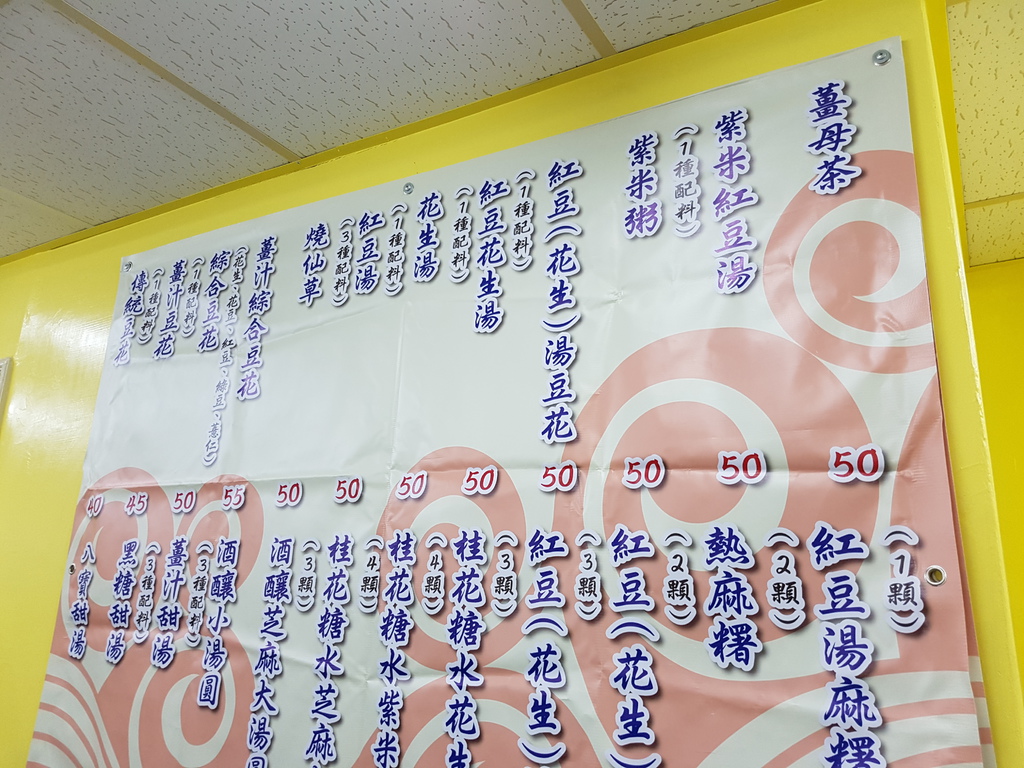 薑母茶
50
紫米紅豆湯
(1種配料)
50
紫米粥
50
紅豆(花生)湯豆花
(1種配料)
50
紅豆花生湯
(1種配料)
50
花生湯
(1種配料)
50
紅豆湯
(3種配料)
50
燒仙草
50
薑汁綜合豆花
(花生、花豆、紅豆、綠豆、薏仁)
55
綜合豆花
(1種配料)
50
薑汁豆花
(1種配料)
45
傳統豆花
40
(1顆)
紅豆湯麻糬
(2顆)
熱麻糬
(2顆)
紅豆(花生)
(3顆)
紅豆(花生)
(3顆)
桂花糖水花生
(4顆)
桂花糖水紫米
(4顆)
桂花糖水芝麻
(3顆)
酒釀芝麻大湯圓
酒釀小湯圓
(3種配料)
薑汁甜湯
(3種配料)
黑糖甜湯
八寶甜湯